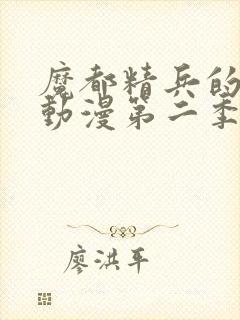 魔都精兵的
動漫第二季
廖洪平